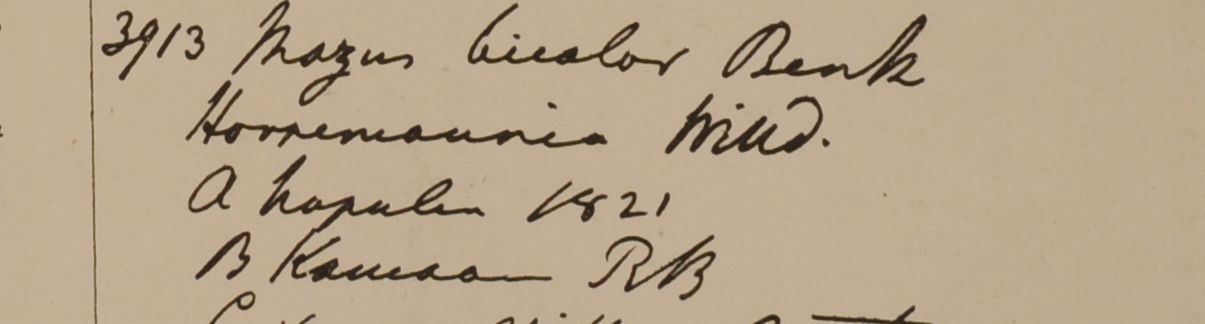 3913 Mazus bicolor Benth
Hornemannia Willd.
A Napalia 1821
B Kamaon RB